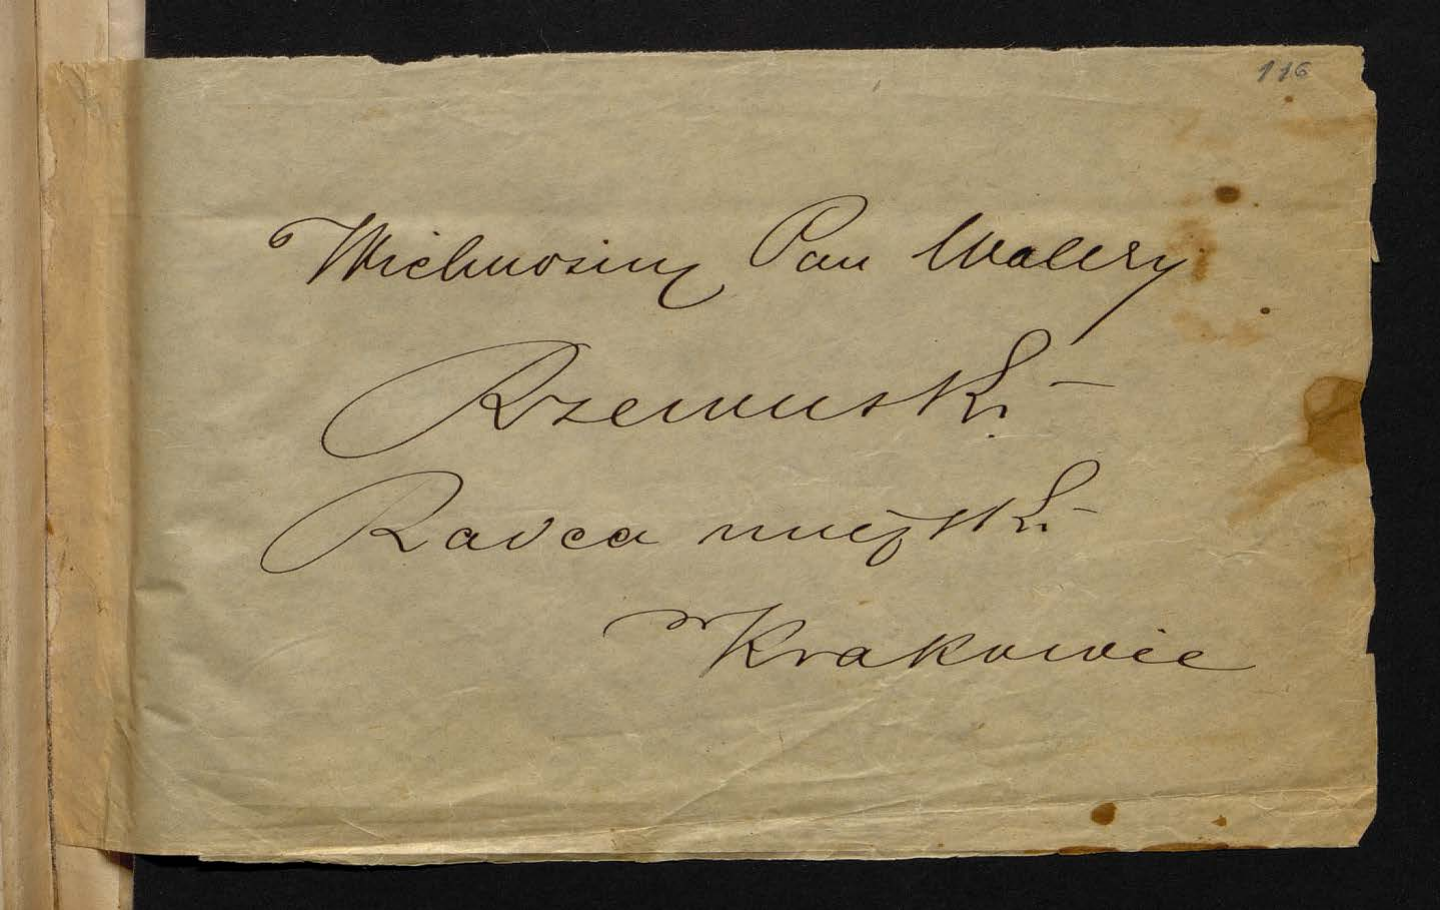 116
Wielmożny Pan Walery
Rzewuski
Radca miejski
w Krakowie